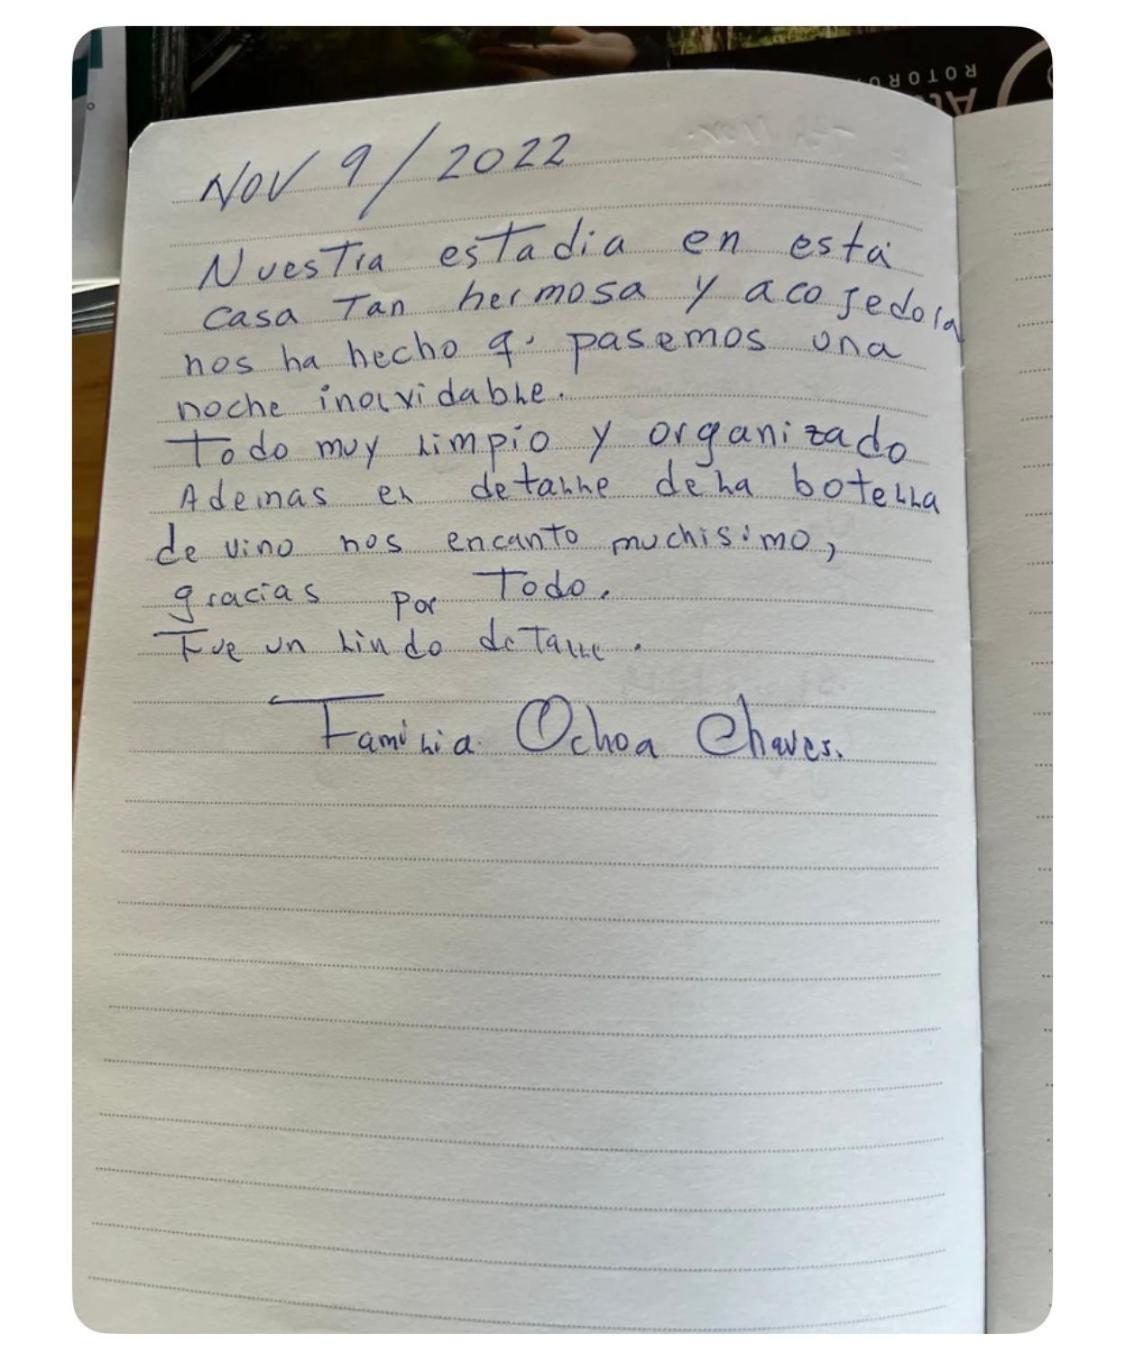 ROTORU
NOV 9/2022
Nuestra estadia en esta
casa Tan hermosa y acojedora
nos ha hecho q. pasemos una
noche inolvidable.
Todo muy Limpio y organizado
Ademas el detalle de la botella
de vino nos encanto muchisimo,
gracias por Todo.
Fue un Lindo detalle.
Familia Ochoa Chaves.